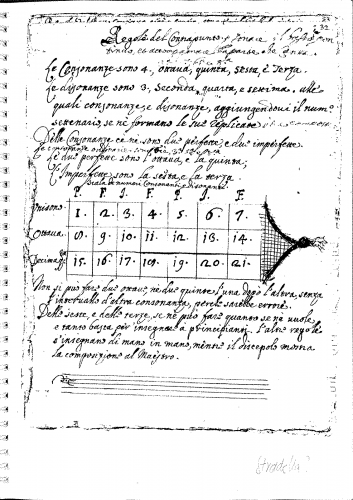 22
Regole del Contrapunto
Le Consonanze sono 4, ottava, quinta, sesta, è Terza.
Le dissonanze sono 3, Seconda, quarta, e settima, alle
quali consonanze, e disonanze, aggiungendovi il num.º
settenario, se ne formano le sue replicate
Delle Consonanze ce ne sono due perfette, e due imperfette.
Le due perfette sono l'ottava, e la quinta,
L'Imperfette sono la sesta, e la terza.
Scala de numeri Consonanti, e disonanti
P. F. I. F. P. I. F.
Unisono 1. 2. 3. 4. 5. 6. 7.
Ottava 8. 9. 10. 11. 12. 13. 14.
Decima 15. 16. 17. 18. 19. 20. 21.
Non si può fare due ottave, nè due quinte l'una doppo l'altra, senza
intervallo d'altra consonanza, perche sarebbe errore.
Delle seste, e delle terze, se ne può fare quante se ne vuole,
e tanto basta per insegnar a principianti. l'altre regole
s'insegnano di mano in mano, mentre il discepolo mostra
la composizione al Maestro.
Stradella?